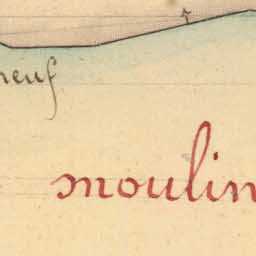 neuf
moulin